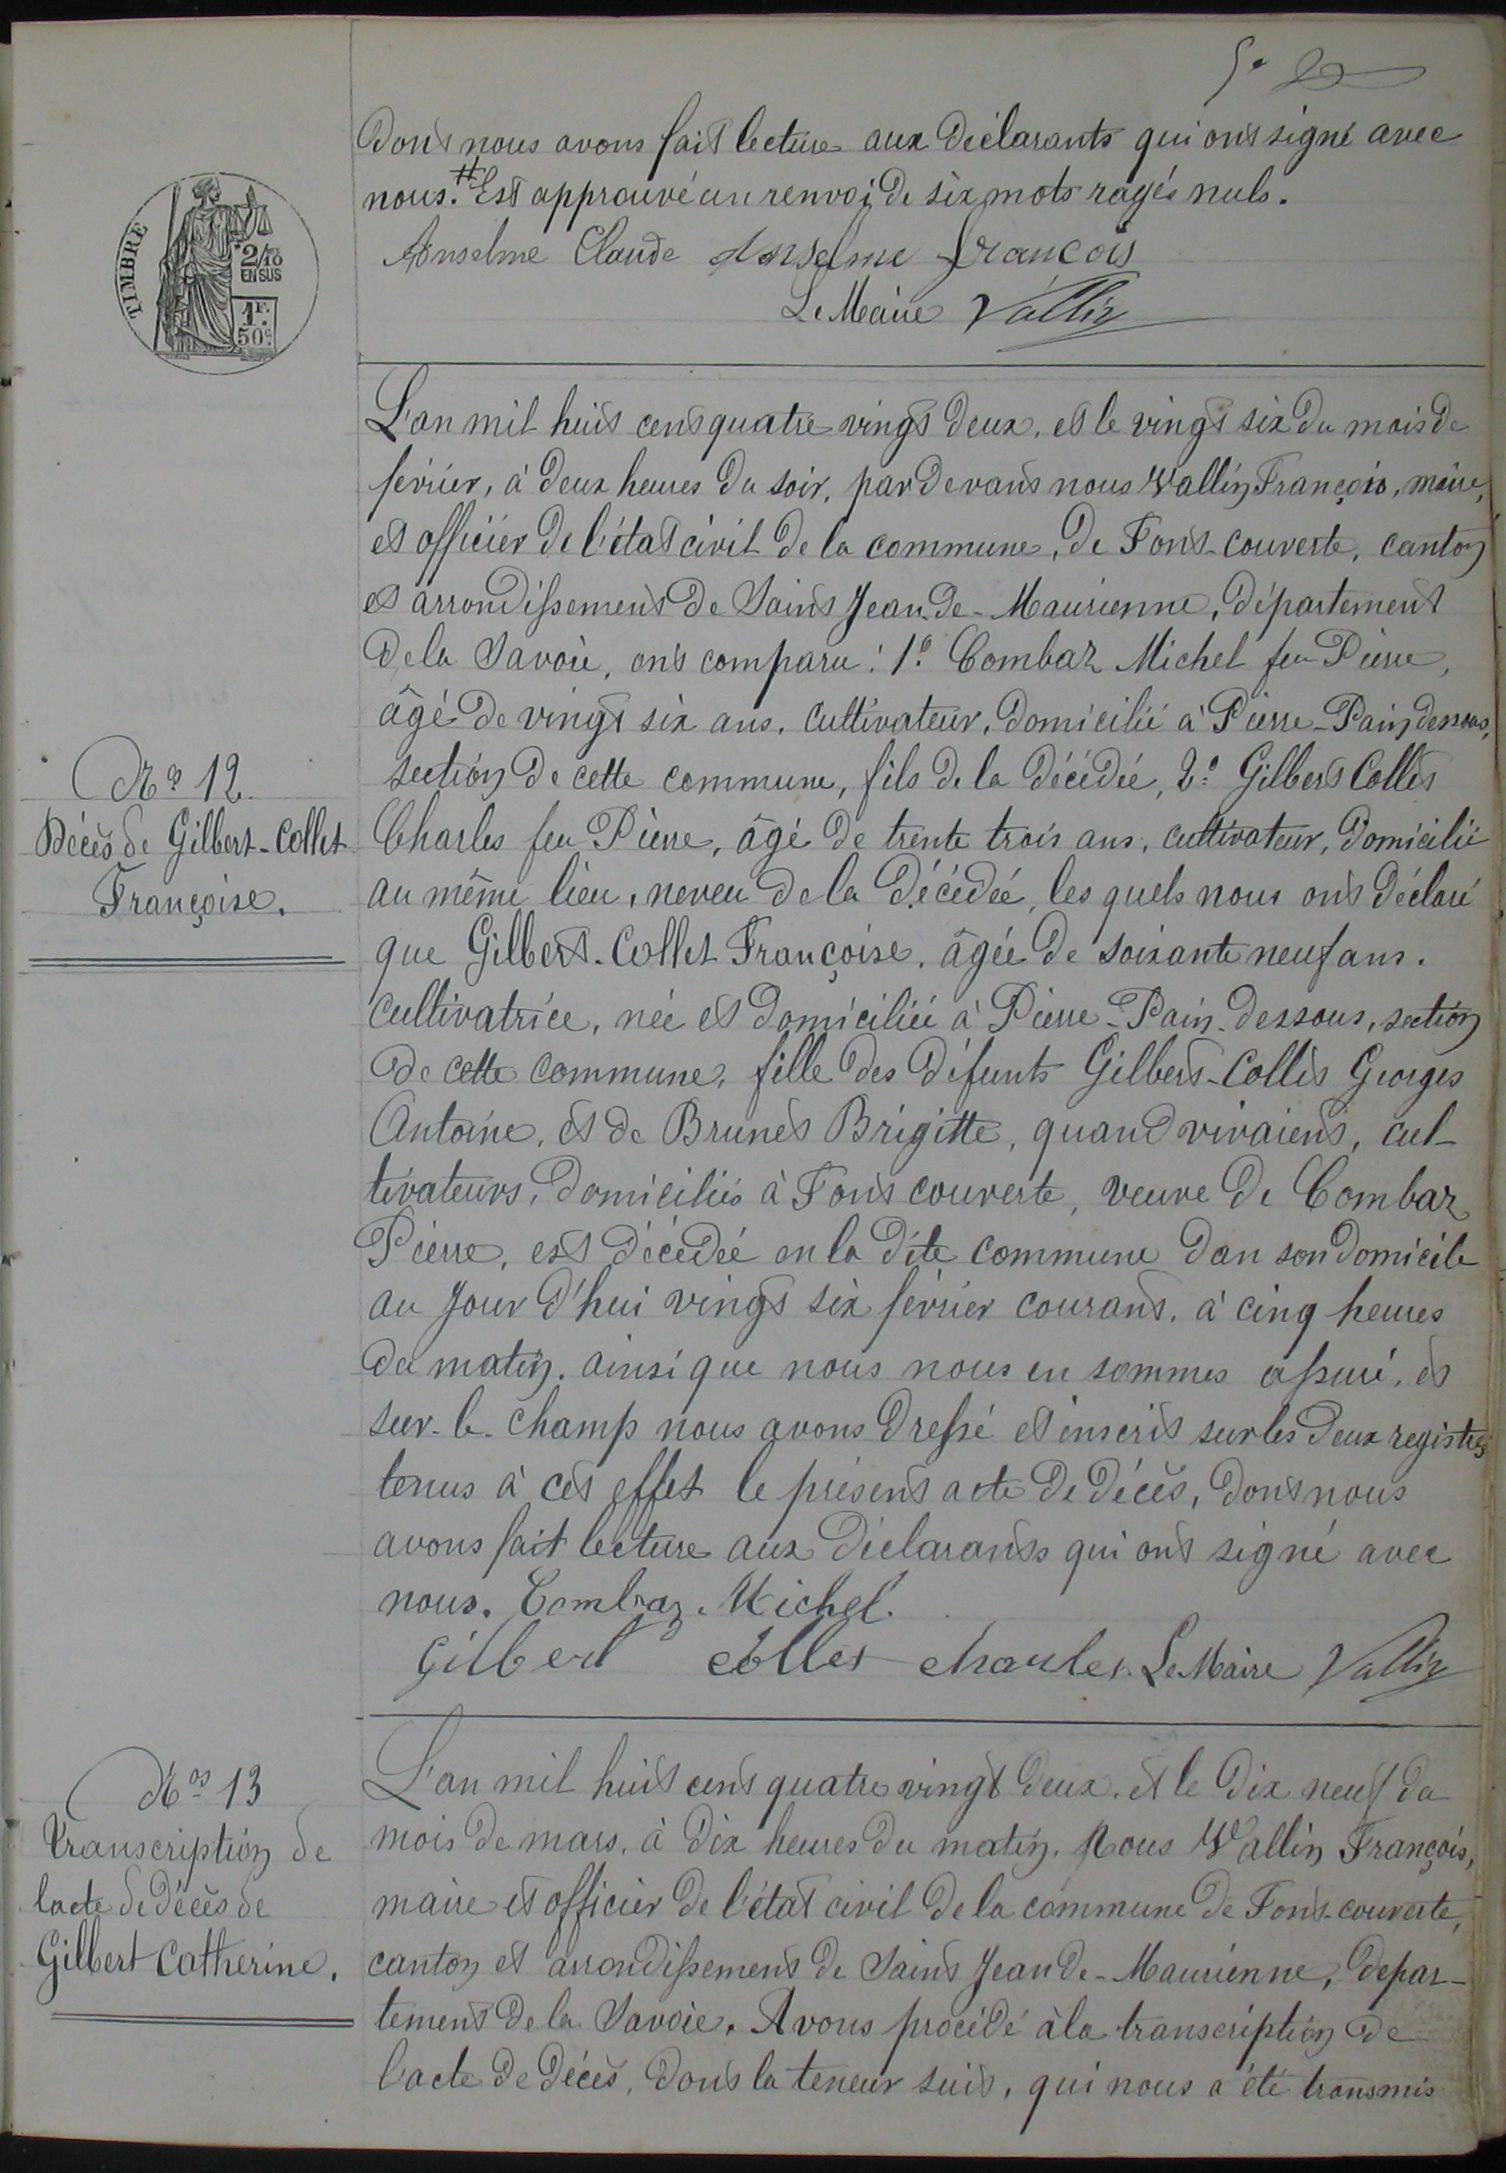 5.
Dont nous avons fait lecture aux déclarants qui ont signé avec
nous. # Est approuvé un renvoi de six mots rayés nuls.
TIMBRE
2/10
EN SUS
1F.
50c
Anselme Claude Anselme françois
Le Maire Vallin
L'an mil huit cent quatre vingt deux, et le vingt six du mois de
février, à deux heures du soir, par devant nous Vallin François, maire,
et officier de l'état civil de la commune, de Font-couverte, canton
et arrondissement de Saint Jean-de-Maurienne, département
de la Savoie, ont comparu: 1º Combaz Michel feu Pierre,
âgé de vingt six ans, cultivateur, domicilié à Pierre-Pain dessous,
section de cette commune, fils de la décédée, 2º Gilbert Collet
Charles feu Pierre, âgé de trente trois ans, cultivateur, domicilié
au même lieu, neveu de la décédée, les quels nous ont déclaré
que Gilbert-Collet Françoise, âgée de soixante neuf ans.
cultivatrice, née et domiciliée à Pierre-Pain-dessous, section
de cette commune, fille des défunts Gilbert-Collet Georges
Antoine, et de Brunet Brigitte, quand vivaient, cul-
tivateurs, domiciliés à Font couverte, veuve de Combaz
Pierre, est décédée en la dite commune dan son domicile
au jour d'hui vingt six février courant, à cinq heures
du matin. ainsi que nous nous en sommes assuré, et
sur-le-champ nous avons dressé et inscrit sur les deux registres
tenus à cet effet le présent acte de décès, dont nous
avons fait lecture aux déclarants qui ont signé avec
nous. Combaz Michel.
Gilbert collet charles. Le Maire Vallin
Nº 12
Décès de Gilbert-Collet
Françoise.
Nos 13
Transcription de
lacte de décès de
Gilbert Catherine.
L'an mil huit cent quatre vingt deux, et le dix neuf du
mois de mars, à dix heures du matin. Nous Vallin François,
maire et officier de l'état civil de la commune de Font-couverte,
canton et arrondissement de Saint Jean de-Maurienne, dépar-
tement de la Savoie. Avons procédé à la transcription de
l'acte de décès, dont la teneur suit, qui nous a été transmis